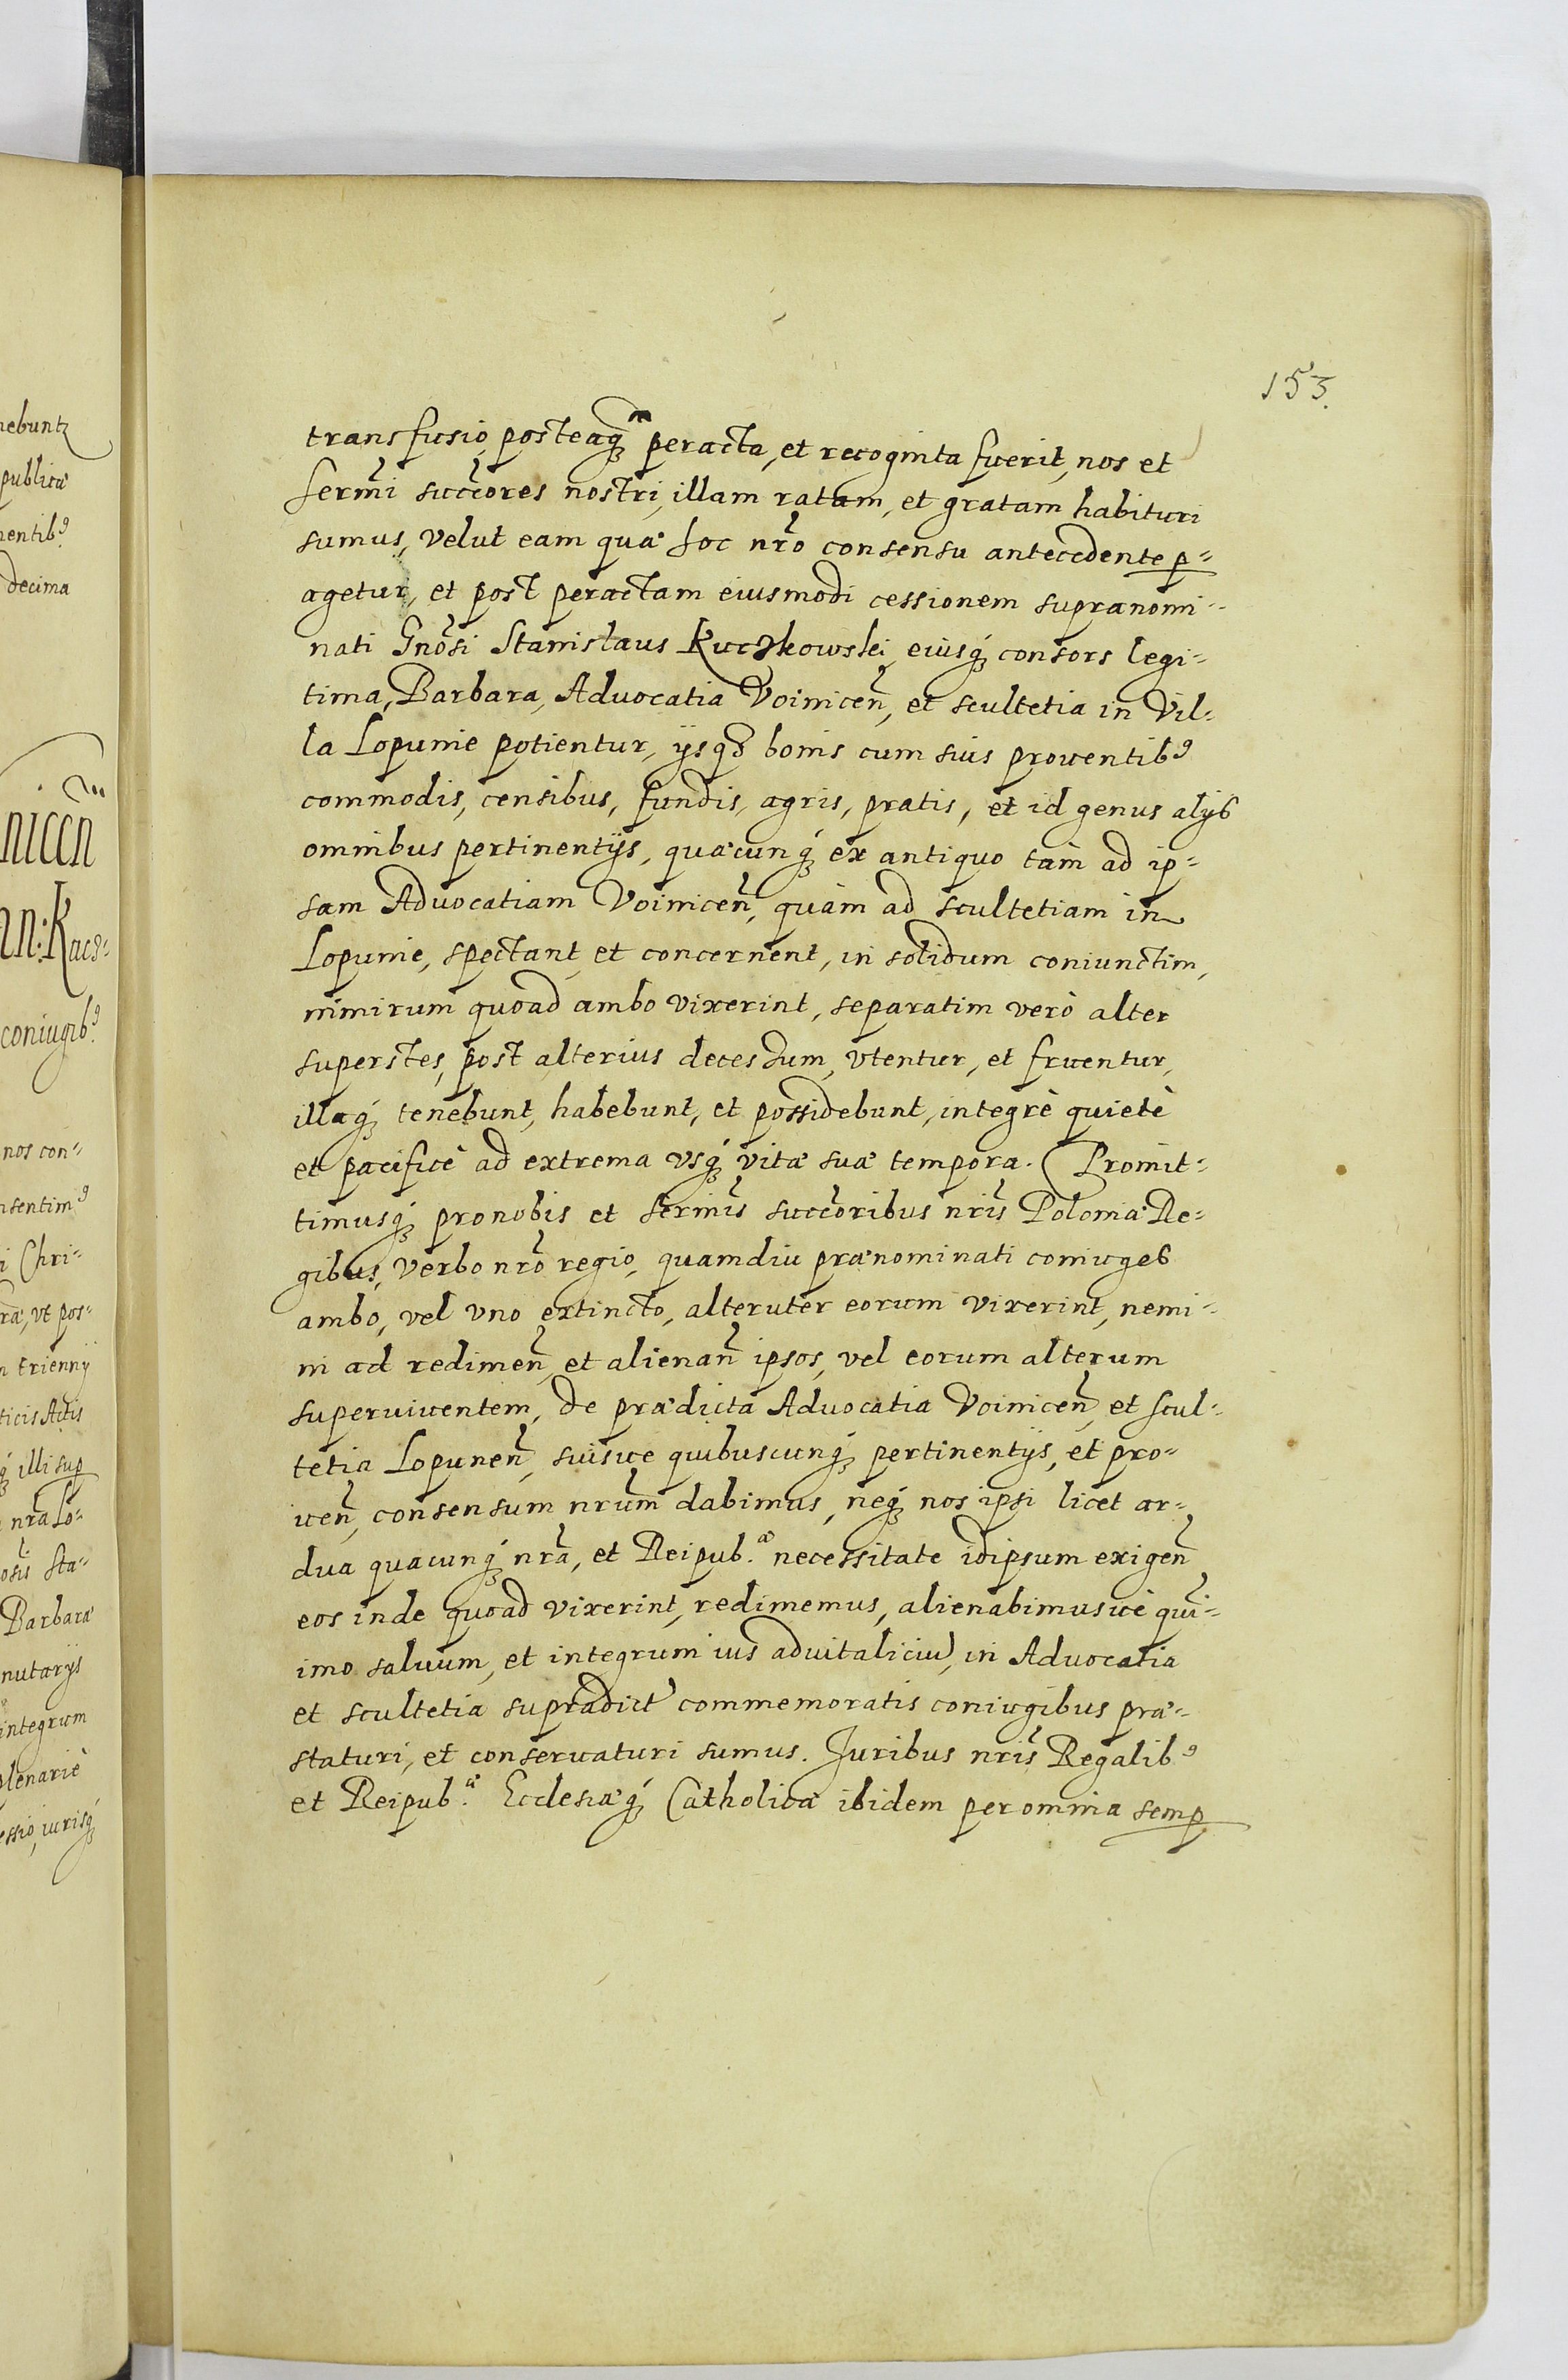 153.
transfusio, posteaqꝫm peracta, et recognita fuerit, nos et
Serm̃i succ̃ores nostri, illam ratam, et gratam habituri
sumus, velut eam quæ hoc nr̃o consensu antecedente p̱-
agetur, et post peractam eiusmodi cessionem supranomi-
nati Gnõsi Stanislaus Kuczkowski, eiusqꝫ consors legi-
tima, Barbara, Advocatia Voinicen̄, et scultetia in Vil-
la Lopunie potientur, ysqꝫ bonis cum suis proventibꝰ
commodis, censibus, fundis, agris, pratis, et id genus alys
omnibus pertinentÿs, quæcunqꝫ ex antiquo tàm ad ip-
sam Advocatiam Voinicen̄, quàm ad scultetiam in
Lopunie, spectant et concernent, in solidum coniunctim,
nimirum quoad ambo vixerint, separatim verò alter
superstes, post alterius decessum, vtentur, et fruentur,
illaqꝫ tenebunt, habebunt, et possidebunt, integrè quietè
et pacificè ad extrema vsqꝫ vitæ suæ tempora. Promit-
timusqꝫ pro nobis et Serm̃is succ̃oribus nr̃is Poloniæ Re-
gibus, verbo nr̃o regio, quamdiu prænominati coniuges
ambo, vel vno extincto, alteruter eorum vixerint, nemi-
ni ad redimen̄, et alienan̄ ipsos, vel eorum alterum
superviventem, de prædicta Advocatia Voinicen̄, et scul-
tetia Lopunen̄, suisve quibuscunqꝫ pertinentÿs, et pro-
ven̄, consensum nr̃um dabimus, neqꝫ nos ipsi licet ar-
dua quacunqꝫ nr̃a, et Reipub.æ necessitate idipsum exigen̄
eos inde quoad vixerint, redimemus, alienabimusvè qui-
imo salvum, et integrum ius advitaliciu̅, in Advocatia
et scultetia supradict' commemoratis coniugibus præ-
staturi, et conservaturi sumus. Juribus nr̃is Regalibꝰ
et Reipub.æ Ecclesiæqꝫ Catholicæ ibidem per omnia semp̱